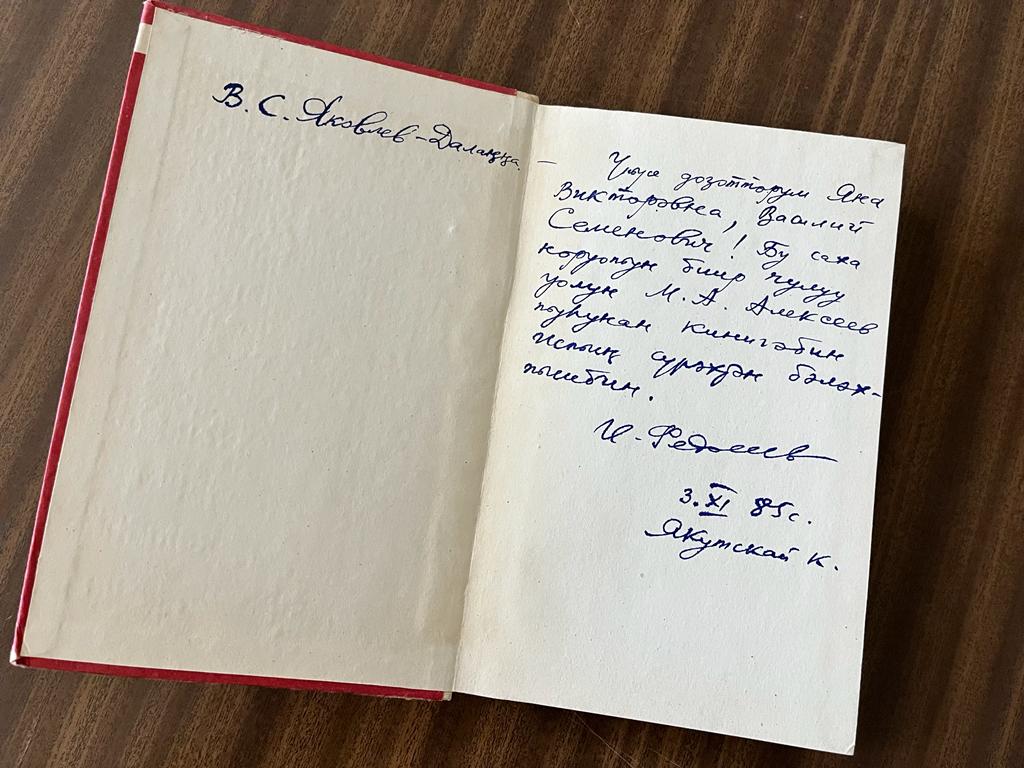 В. С. Яковлев-Далаҥҥа –
доҕотторум Яна
Викторовна, Василий
Семенович! Бу саха
норуотун биир чулуу
уолун М. А. Алексеев
туһунан кинигэбин
истиҥ сүрэхтэн бэлэх-
тиибин.
И. Федосеев
3. XI 85 с.
Якутскай к.